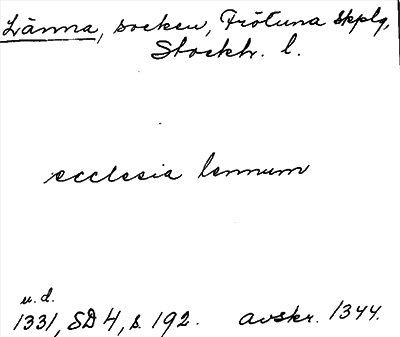 Länna, socken, Frötuna skplg,
Stockh. l.
ecclesia lennum
u.d.
1331, SD 4, s. 192. avskr. 1344.